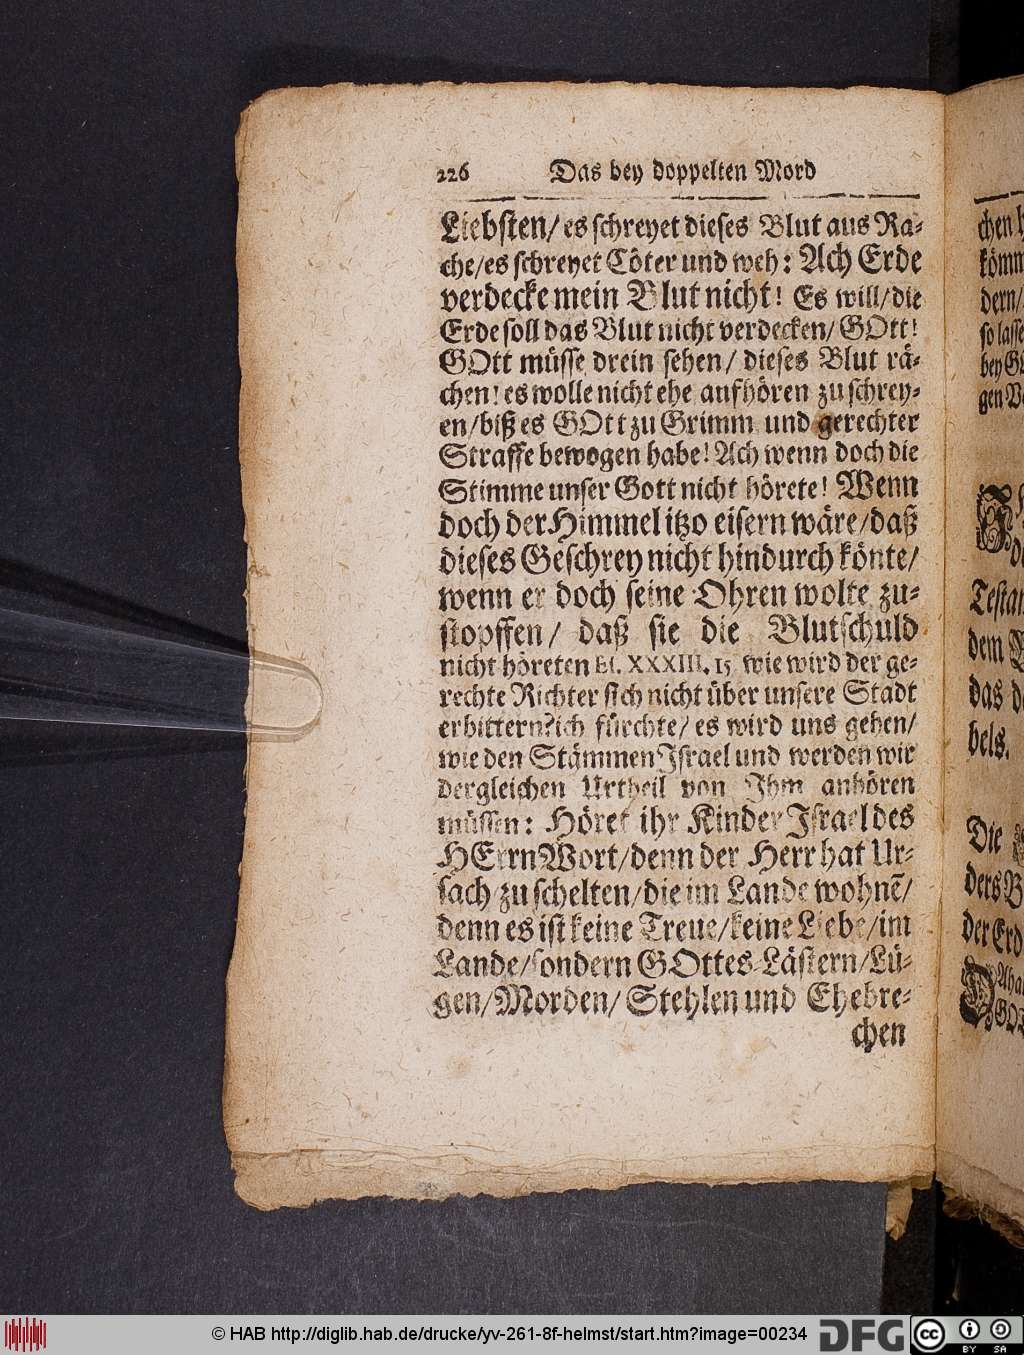 226 Das bey doppelten Mord
Liebsten/ es schreyet dieses Blut aus Ra-
che/es schreyet Cöter und weh: Ach Erde
verdecke mein Blut nicht! Es will/die
Erde soll das Blut nicht verdecken/ GOtt!
GOtt müsse drein sehen/ dieses Blut rä-
chen! es wolle nicht ehe aufhören zu schrey-
en/biß es GOtt zu Grimm und gerechter
Straffe bewogen habe! Ach wenn doch die
Stimme unser Gott nicht hörete! Wenn
doch der Himmel itzo eisern wäre/daß
dieses Geschrey nicht hindurch könte/
wenn er doch seine Ohren wolte zu-
stopffen/ daß sie die Blutschuld
nicht höreten Ef. XXXIII. 15 wie wird der ge-
rechte Richter sich nicht über unsere Stadt
erbittern?ich fürchte/ es wird uns gehen/
wie den Stämmen Israel und werden wir
dergleichen Urtheil von Ihm anhören
müssen: Höret ihr Kinder Israel des
HErrn Wort/denn der Herr hat Ur-
sach/zu schelten/die im Lande wohnē/
denn es ist keine Treue/keine Liebe/im
Lande/sondern GOttes-Lästern/Lü-
gen/Morden/ Stehlen und Ehebre-
chen
chen
dern/
gen
Testan
dem
das
bels.
Die
ders
der Erd
© HAB http://diglib.hab.de/drucke/yv-261-8f-helmst/start.htm?image=00234
DFG
cc BY SA